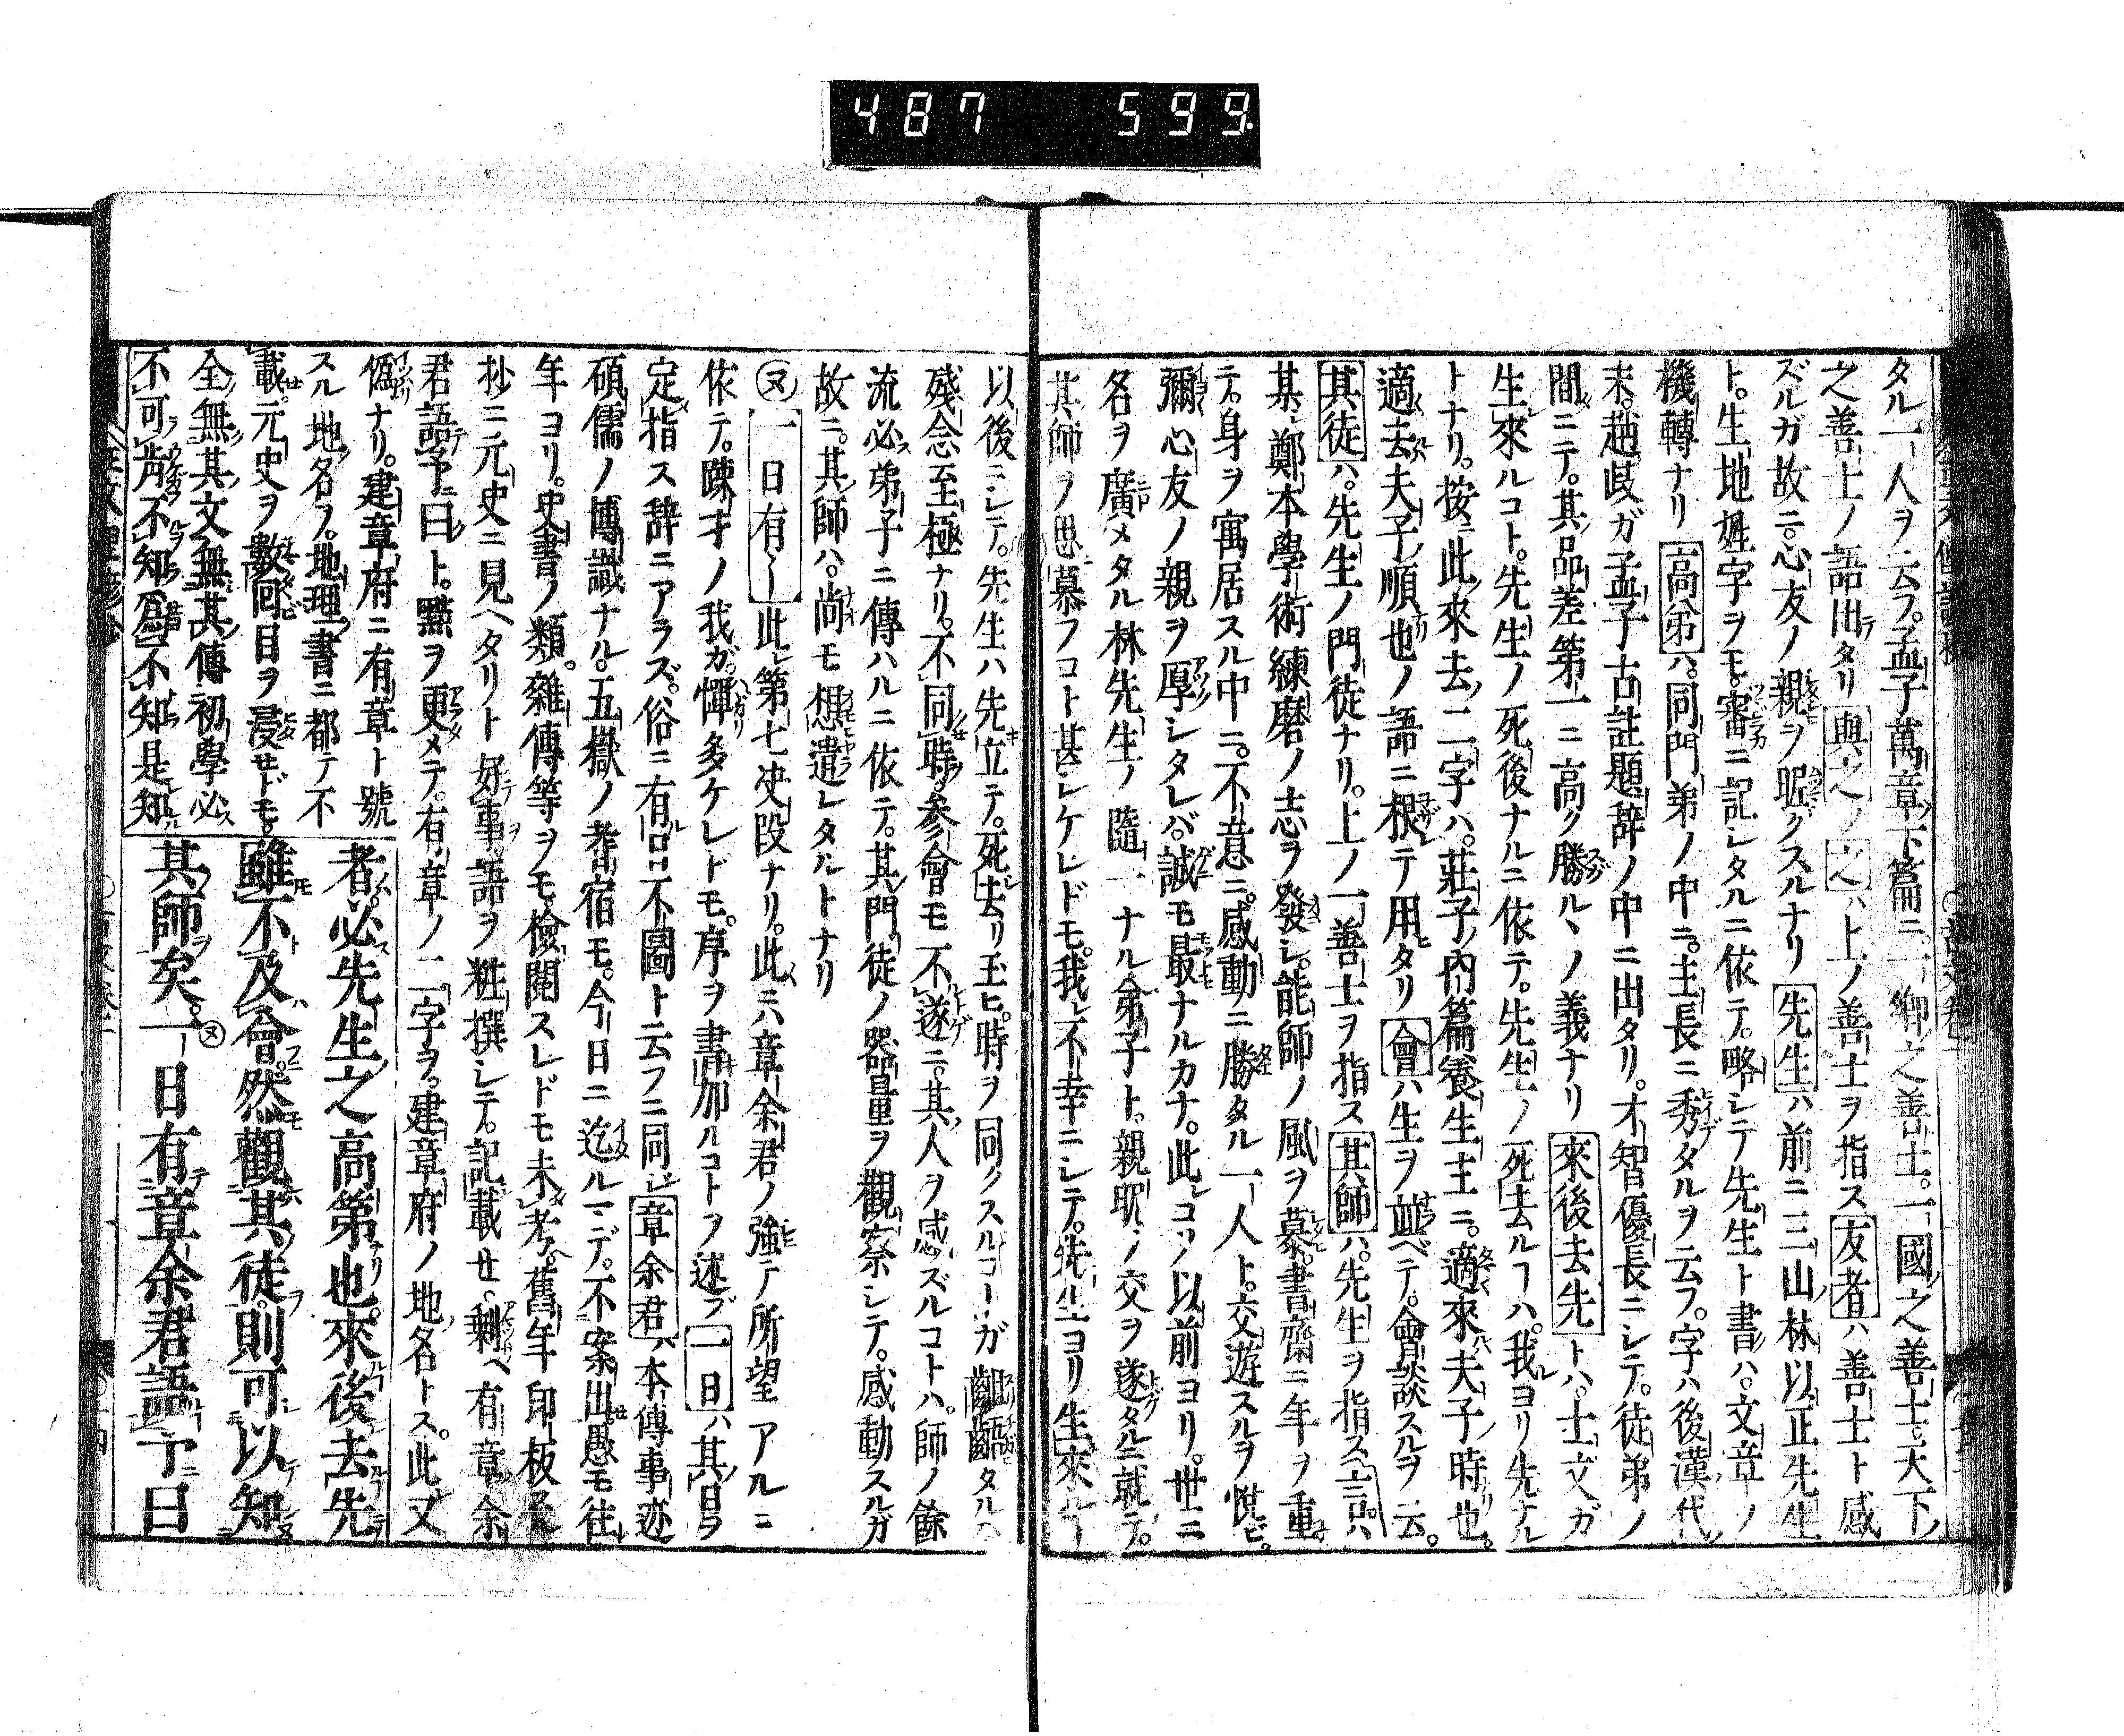 487 599.
タル一人ヲ云フ。孟子萬章下篇ニ。一郷之善士。一國之善士。天下
之善士ノ語出タリ與之ノ之ハ上ノ善士ヲ指ス友者ハ善士ト感
ズルガ故ニ。心友ノ親ヲ昵クスルナリ先生ハ前ニ三山林以正先生
ト。生地姓字ヲモ。審ニ記シタルニ依テ。略シテ先生ト書ハ。文章ノ
機轉ナリ高弟ハ。同門弟ノ中ニ。主長ニ秀タルヲ云フ。字ハ後漢代ノ
末。趙岐ガ孟子古註題辞ノ中ニ出タリ。才智優長ニシテ。徒弟ノ
間ニテ。其品差第一ニ高ク勝ルヽノ義ナリ來後去先トハ。士文ガ
生來ルコト。先生ノ死後ナルニ依テ。先生ノ死去ルヿハ。我ヨリ先ナル
トナリ。按ニ此來去ノ二字ハ。莊子內篇養生主ニ。適來夫子時也。
適去夫子順也ノ語ニ根テ用タリ會ハ生ヲ並ベテ。會談スルヲ云。
其徒ハ。先生ノ門徒ナリ。上ノ一善士ヲ指ス其師ハ。先生ヲ指ス言ハ
某鄭本學術練磨ノ志ヲ發シ。能師ノ風ヲ慕。書齋ニ年ヲ重
テ。身ヲ寓居スル中ニ。不意ニ。感動ニ勝タル一人ト。交遊スルヲ悅ビ。
彌心友ノ親ヲ厚シタレバ。誠モ最ナルカナ。此コノ以前ヨリ。世ニ
名ヲ廣メタル林先生ノ隨一ナル弟子ト。親昵ノ交ヲ遂タルニ就テ。
其師ヲ思慕フコト甚シケレドモ。我レ不幸ニシテ。先生ヨリ生來ヿ
以後ニシテ。先生ハ先立テ。死去リ玉ヒ。時ヲ同クスルコトガ齟齬タルハ
殘念至極ナリ。不同時。參會モ不遂ニ。其人ヲ感ズルコトハ。師ノ餘
流必弟子ニ傳ハルニ依テ。其門徒ノ器量ヲ觀察シテ。感動スルガ
故ニ。其師ハ。尚モ想遣レタルトナリ
㋦一日有〻此第七決段ナリ。此ニ六章余君ノ強テ所望アルニ
依テ。踈才ノ我ガ憚多ケレトモ。序ヲ書加ルコトヲ述ブ一日ハ其日ヲ
定指ス辞ニアラズ。俗ニ有ルロ不圖ト云フニ同シ章余君ハ本傳事迹
碩儒ノ博識ナル。五嶽ノ耆宿モ。今日ニ迄ルマデ。不案出。愚モ往
年ヨリ。史書ノ類。雜傳等ヲモ。檢閱スレドモ未考。舊年印板スル
抄ニ元史ニ見ヘタリト好事語ヲ粧撰シテ。記載セ。剩ヘ有章余
君語予曰ト。點ヲ更メテ。有章ノ二字ヲ。建章府ノ地名トス。此又
僞ナリ。建章府ニ有章ト號
スル地名フ。地理書ニ都テ不
載。元史ヲ數回目ヲ浸セドモ。
全無其文無其傳。初學必
不可肯。不知爲不知是知
者必先生之高第也。來後去先
雖不及會。然觀其徒。則可以知
其師矣。㋦一日有章余君語予曰